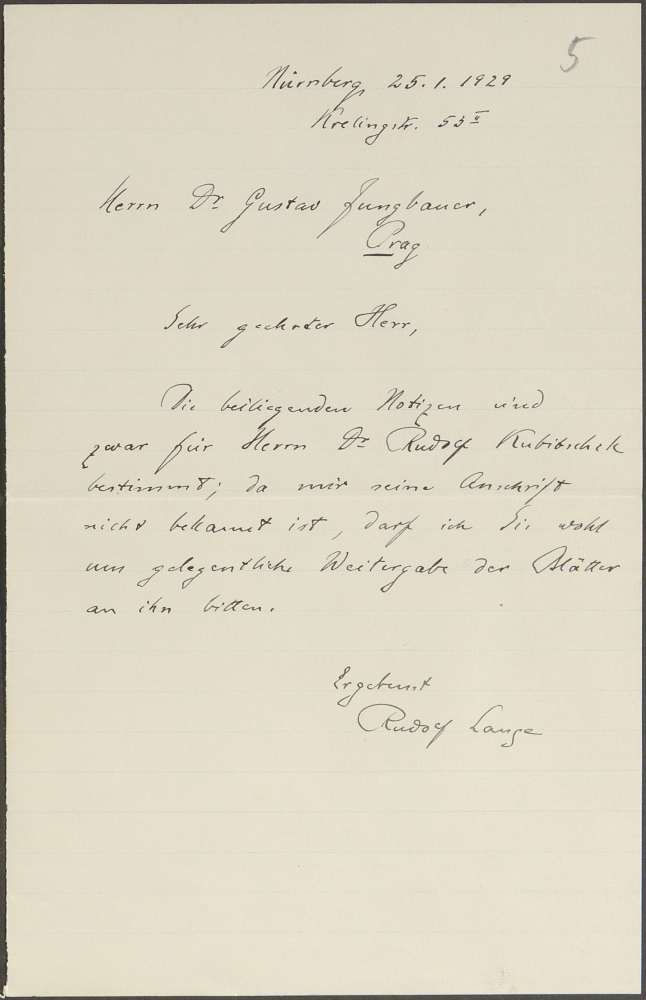 5
Nürnberg, 25. 1. 1929
Krelingstr. 53 II
Herrn Dr Gustav Jungbauer,
Prag
Sehr geehrter Herr,
Die beiliegenden Notizen sind
zwar für Herrn Dr Rudolf Kubitschek
bestimmt; da mir seine Anschrift
nicht bekannt ist, darf ich Sie wohl
um gelegentliche Weitergabe der Blätter
an ihn bitten.
Ergebenst
Rudolf Lange